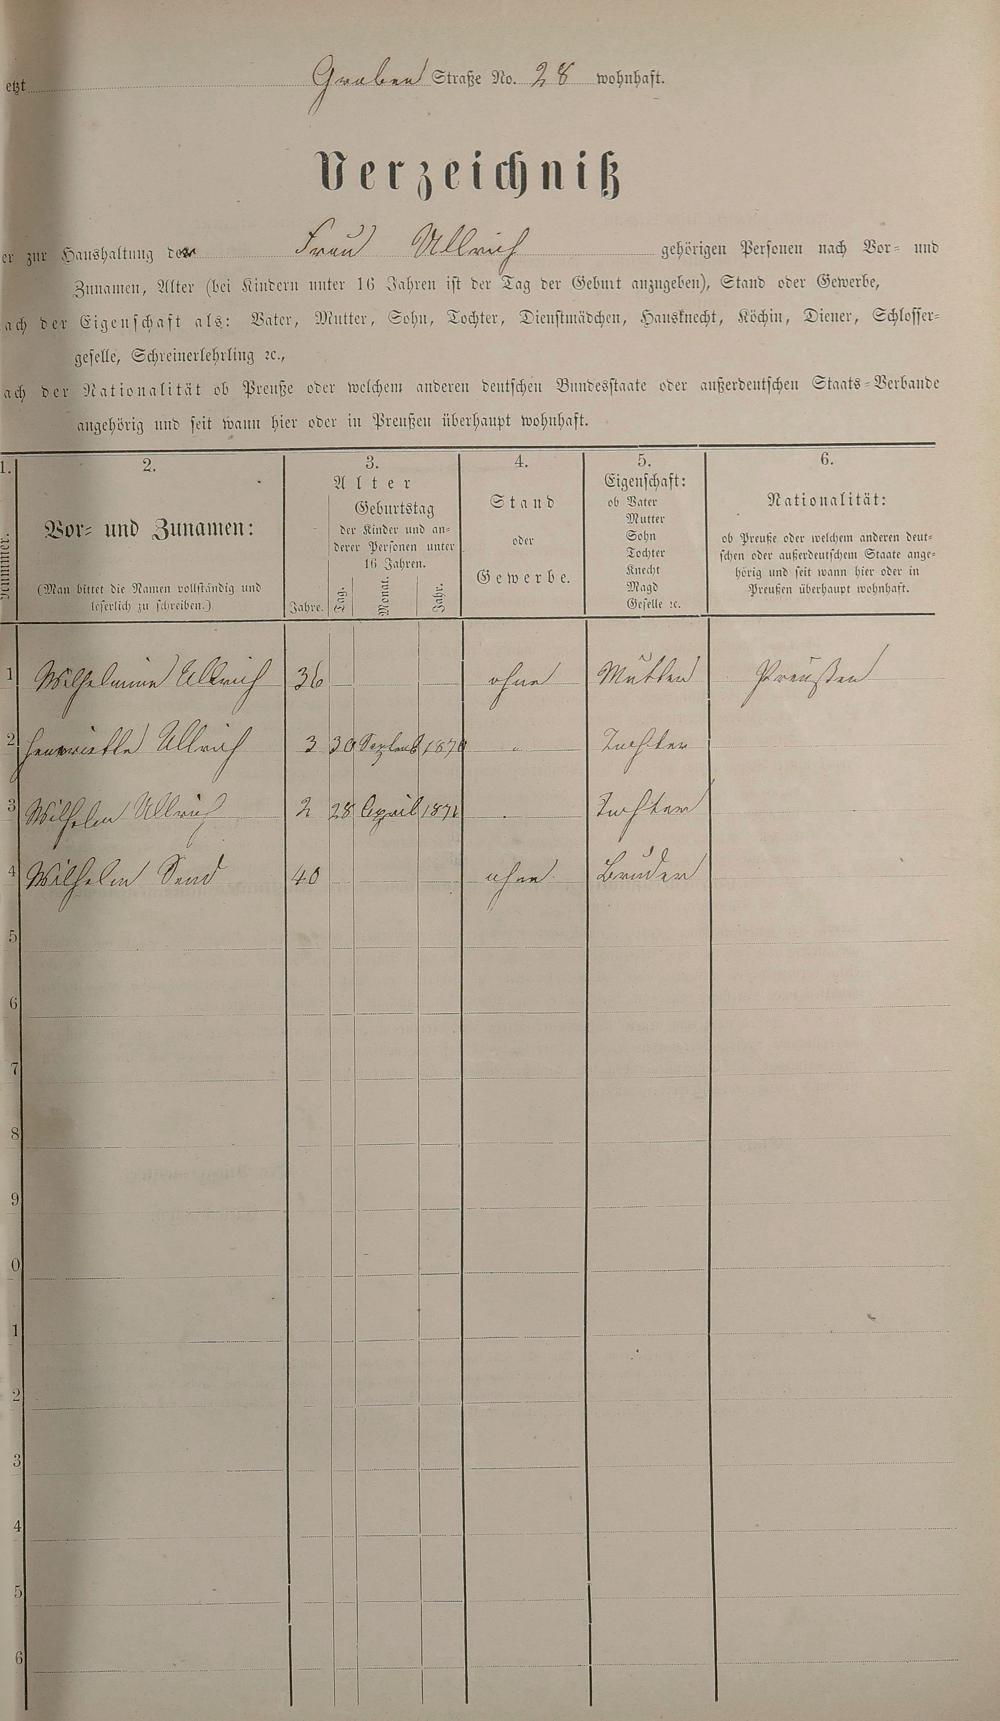 etzt Graben Straße No. 28 wohnhaft.
Verzeichniß
er zur Haushaltung der Frau Ullrich gehörigen Personen nach Vor- und
Zunamen, Alter (bei Kindern unter 16 Jahren ist der Tag der Geburt anzugeben), Stand oder Gewerbe,
ach der Eigenschaft als: Vater, Mutter, Sohn, Tochter, Dienstmädchen, Hausknecht, Köchin, Diener, Schlosser-
geselle, Schreinerlehrling ꝛc.,
ach der Nationalität ob Preuße oder welchem anderen deutschen Bundesstaate oder außerdeutschen Staats-Verbande
angehörig und seit wann hier oder in Preußen überhaupt wohnhaft.
1. 2. 3. 4. 5. 6.
Nummer.
Vor- und Zunamen:
(Man bittet die Namen vollständig und
leserlich zu schreiben.)
Alter
Jahre.
Geburtstag
der Kinder und an-
derer Personen unter
16 Jahren.
Tag. Monat. Jahr.
Stand
oder
Gewerbe.
Eigenschaft:
ob Vater
Mutter
Sohn
Tochter
Knecht
Magd
Geselle ꝛc.
Nationalität:
ob Preuße oder welchem anderen deut-
schen oder außerdeutschem Staate ange-
hörig und seit wann hier oder in
Preußen überhaupt wohnhaft.
1 Wilhelmine Ullrich 36 ohne Mutter Preußen
2 Henriette Ullrich 3 30 Septemb 1870 " Tochter
3 Wilhelm Ullrich 2 28 April 1871 Tochter
4 Wilhelm Send 40 ohne Bruder
5
6
7
8
9
0
1
2
3
4
5
6